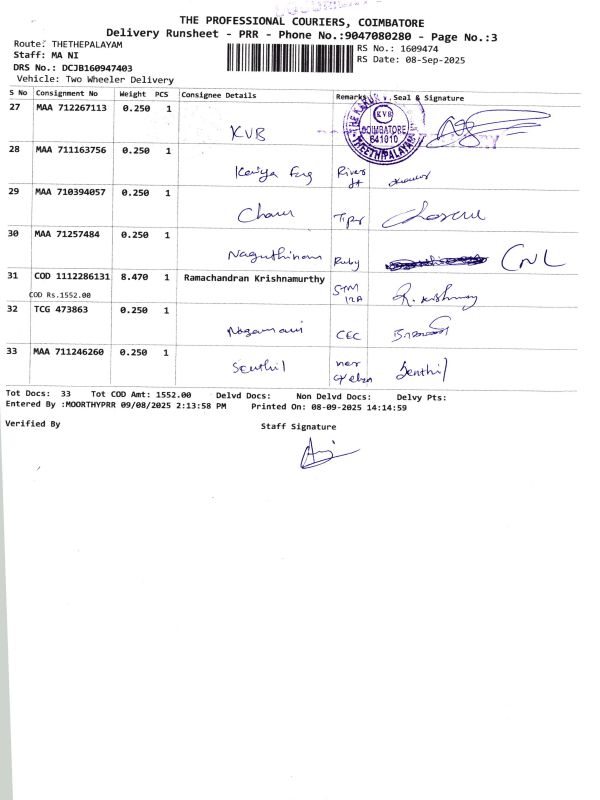 THE PROFESSIONAL COURIERS, COIMBATORE
Delivery Runsheet - PRR - Phone No.:9047080280 - Page No.:3
Route: THETHEPALAYAM
Staff: MA NI
DRS No.: DCJB160947403
Vehicle: Two Wheeler Delivery
RS No.: 1609474
RS Date: 08-Sep-2025
S No Consignment No Weight PCS Consignee Details Remarks Seal & Signature
27 MAA 712267113 0.250 1 KVB
KVB
COIMBATORE
641010
28 MAA 711163756 0.250 1 River
29 MAA 710394057 0.250 1
30 MAA 71257484 0.250 1 Ruby
31 COD 1112286131 8.470 1 Ramachandran Krishnamurthy
COD Rs.1552.00
32 TCG 473863 0.250 1 Nagamani CEC
33 MAA 711246260 0.250 1 Senthil Senthil
Tot Docs: 33 Tot COD Amt: 1552.00 Delvd Docs: Non Delvd Docs: Delvy Pts:
Entered By :MOORTHYPRR 09/08/2025 2:13:58 PM Printed On: 08-09-2025 14:14:59
Verified By Staff Signature